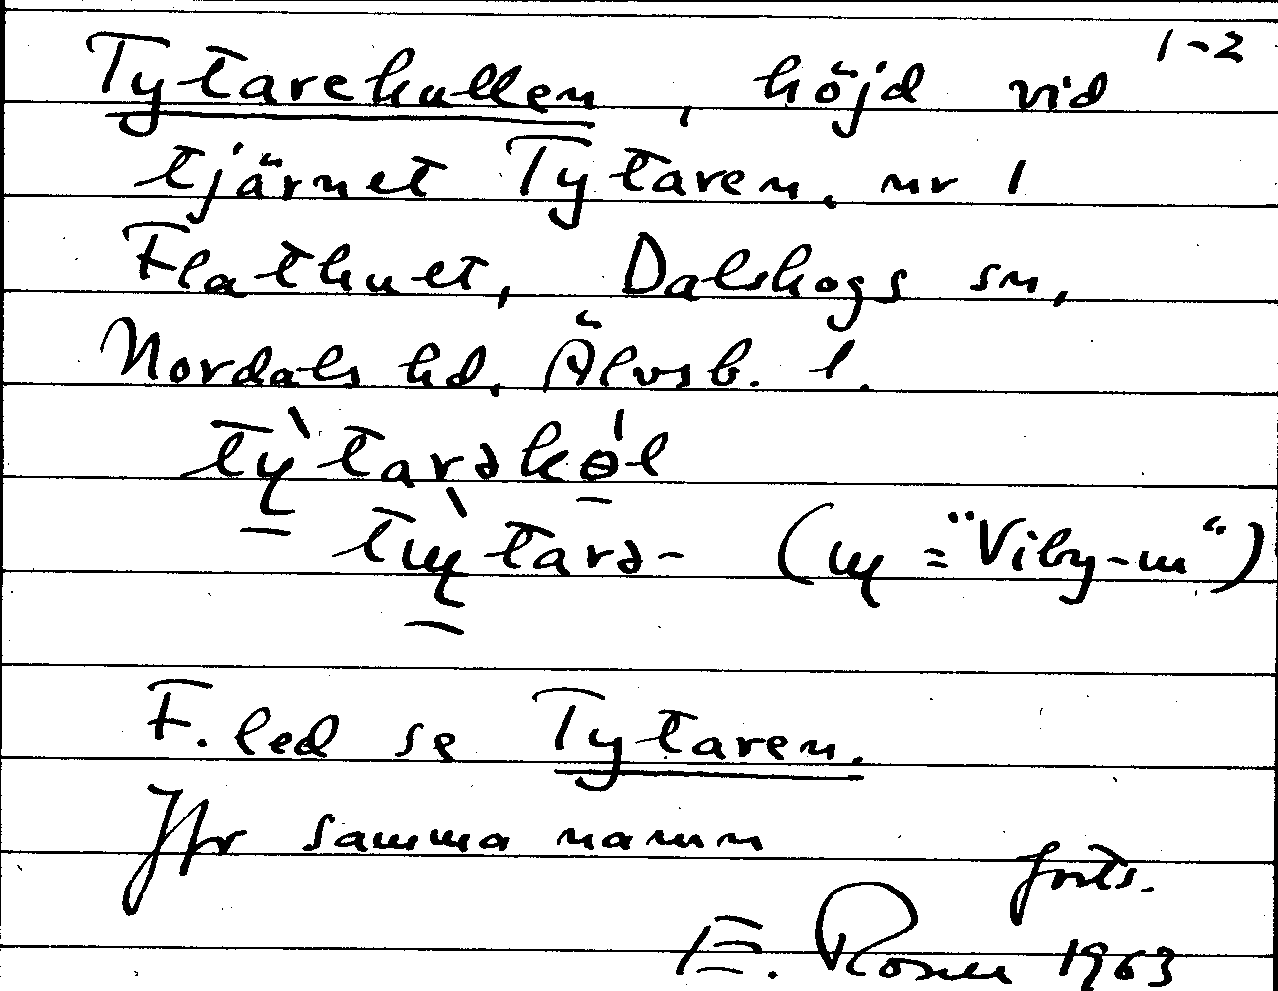 1-2
Tytarekullen, höjd vid
tjärnet Tytaren, nr 1
Flathult, Dalskogs sn,
Nordals hd, Älvsb. l.
tỳtarəkɵ́l
tɯ̀tarə- (ɯ = "Viby-ɯ")
F. led se Tytaren.
Jfr samma namn
forts.
E. Rosell 1963